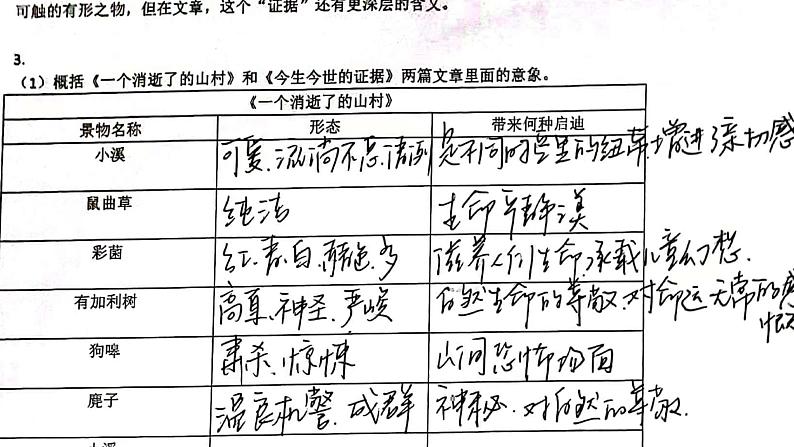 可触的有形之物，但在文章，这个“证据”还有更深层的含义。
3.
（1）概括《一个消逝了的山村》和《今生今世的证据》两篇文章里面的意象。
《一个消逝了的山村》
景物名称 形态 带来何种启迪
小溪 可爱、流淌不息、清冽 是不同时空里的纽带，增进了亲切感
鼠曲草 纯洁 生命
彩菌 红、青、白、颜色多 滋养人们生命，承载儿童幻想.
有加利树 高耸、神圣、严峻 自然生命的尊敬，对命运无常的感
狗嗥 肃杀、惊悚 山间恐怖
鹿子 温良机警、成群 神秘，对自然的尊敬.
小溪